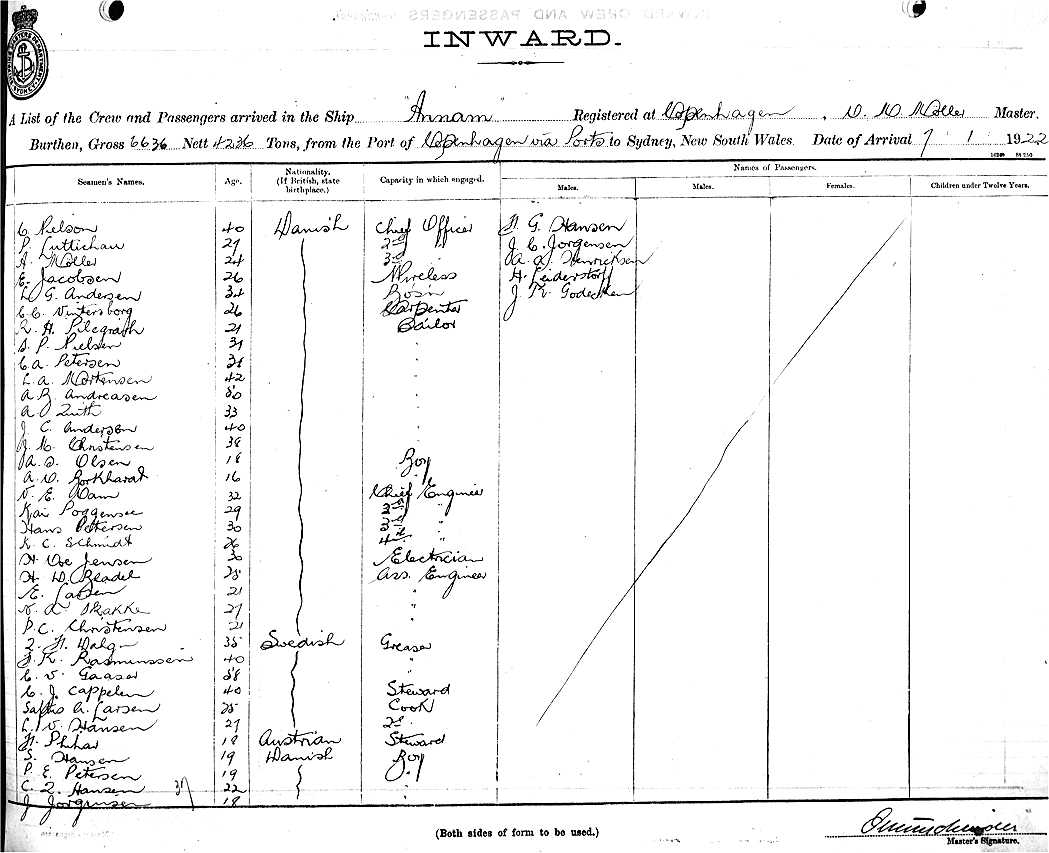 INWARD.
A List of the Crew and Passengers arrived in the Ship "Annam" Registered at Copenhagen, Master.
Burthen, Gross 6636 Nett 4236 Tons, from the Port of Copenhagen via Ports to Sydney, New South Wales. Date of Arrival 7 1 1922
Seamen's Names. Age. Nationality. (If British, state birthplace.) Capacity in which engaged. Names of Passengers.
Males. Males. Females. Children under Twelve Years.
C Nielson 40 Danish Chief Officer H. G. Hansen
P. Luttichau 27 2nd J. C. Jorgensen
A. Moller 24 3rd Henricksen
E. Jacobsen 26 Wireless H. Leiderstorff
G. Andersen 34 Bos'n J K Godecken
C. C. Vintersborg 26 Carpenter
R. H. Pilegraph 21 Sailor
S. P. Nielsen 31 "
C. A. Petersen 31 "
L. A. Mortensen 42 "
A B Andreasen 50 "
A 33 "
J. C. Andersen 40 "
Christensen 38 "
A. S. Olsen 18 Boy
A. W. 16 "
V. E. Dam 32 Chief Engineer
Kai Poggensee 29 2nd "
Hans Pettersen 30 3rd "
K. C. Schmidt 26 4th "
H. Jensen 30 Electrician
H. W. 28 Ass. Engineer
E. Larsen 21 "
Skakke 27 "
P. C. Christensen 21 "
H. 35 Swedish Greaser
J. K. Rasmunssen 40 "
C. V. Gaaser 58 "
C. J. Cappelen 40 Steward
Larsen 25 Cook
L. V. Hansen 27 2nd
H. 18 Austrian Steward
S. Hansen 19 Danish Boy
P. E. Petersen 19 "
C. Hansen 22 "
J Jorgensen 18 "
(Both sides of form to be used.)
Master's Signature.